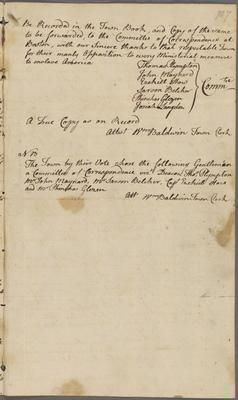 Be Recorded in the Town Book, and Copy of the same
to be forwarded to the Committee of Correspondence at
Boston, with our Sincere thanks to that respectable Town
for their manly Opposition to every Ministerial measure
to enslave America
Thomas Plympton
John Maynard
Ezekiel How
Jarson Belcher
Phinehas Glezen
Josiah Langdon
Comm.tee
A True Copy as on Record
Attest Wm Baldwin Town Clerk
NB
The Town by their Vote chose the following Gentlemen
a Committee of Correspondence viz.t Deacon Tho.s Plympton
Mr John Maynard, Mr Jarson Belcher, Cap.t Ezekiel How
and Mr Phinehas Glezen
Att Wm Baldwin Town Clerk